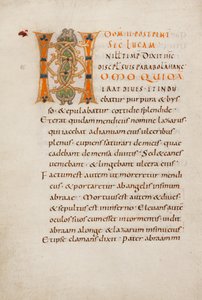 DOM II POST PENT
SEC LUCAM
N ILL TEMP DIXIT IHC
DISCPL SUIS PARABOLA HANC
OMO QUIDA
ERAT DIUES ET INDU
ebatur purpura & bys
so & epulabatur cotidie splendide
Et erat quidam mendicus nomine lazarus
qui iacebat ad ianuam eius ulceribus
plenus cupiens saturari de micis quae
cadebant de mensa diuitis Sed & canes
ueniebant & lingebant ulcera eius
Factum est autem ut moreretur mendi
cus & portaretur ab angelis in sinum
abraae Mortuus est autem & diues &
sepultus est in inferno Eleuans autem
oculos suos cum esset in tormentis uidit
abraam a longe & lazarum in sinu eius
Et ipse clamans dixit pater abraam